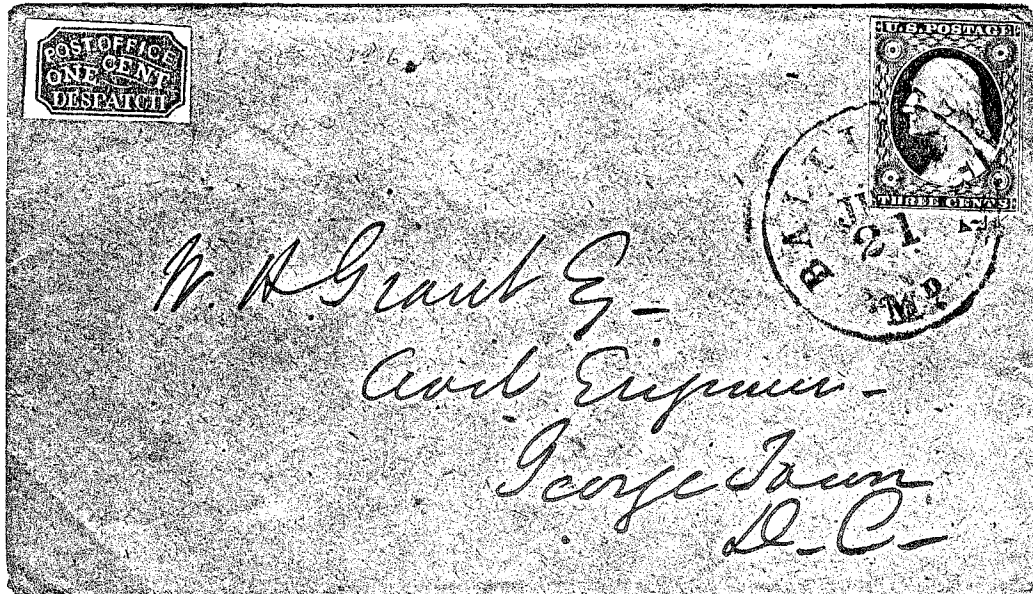 POST OFFICE
ONE CENT
DESPATCH
U.S. POSTAGE
THREE CENTS
BALTI
21
Md
W. H Grant Esq -
Civil Engineer -
George Town
D. C -